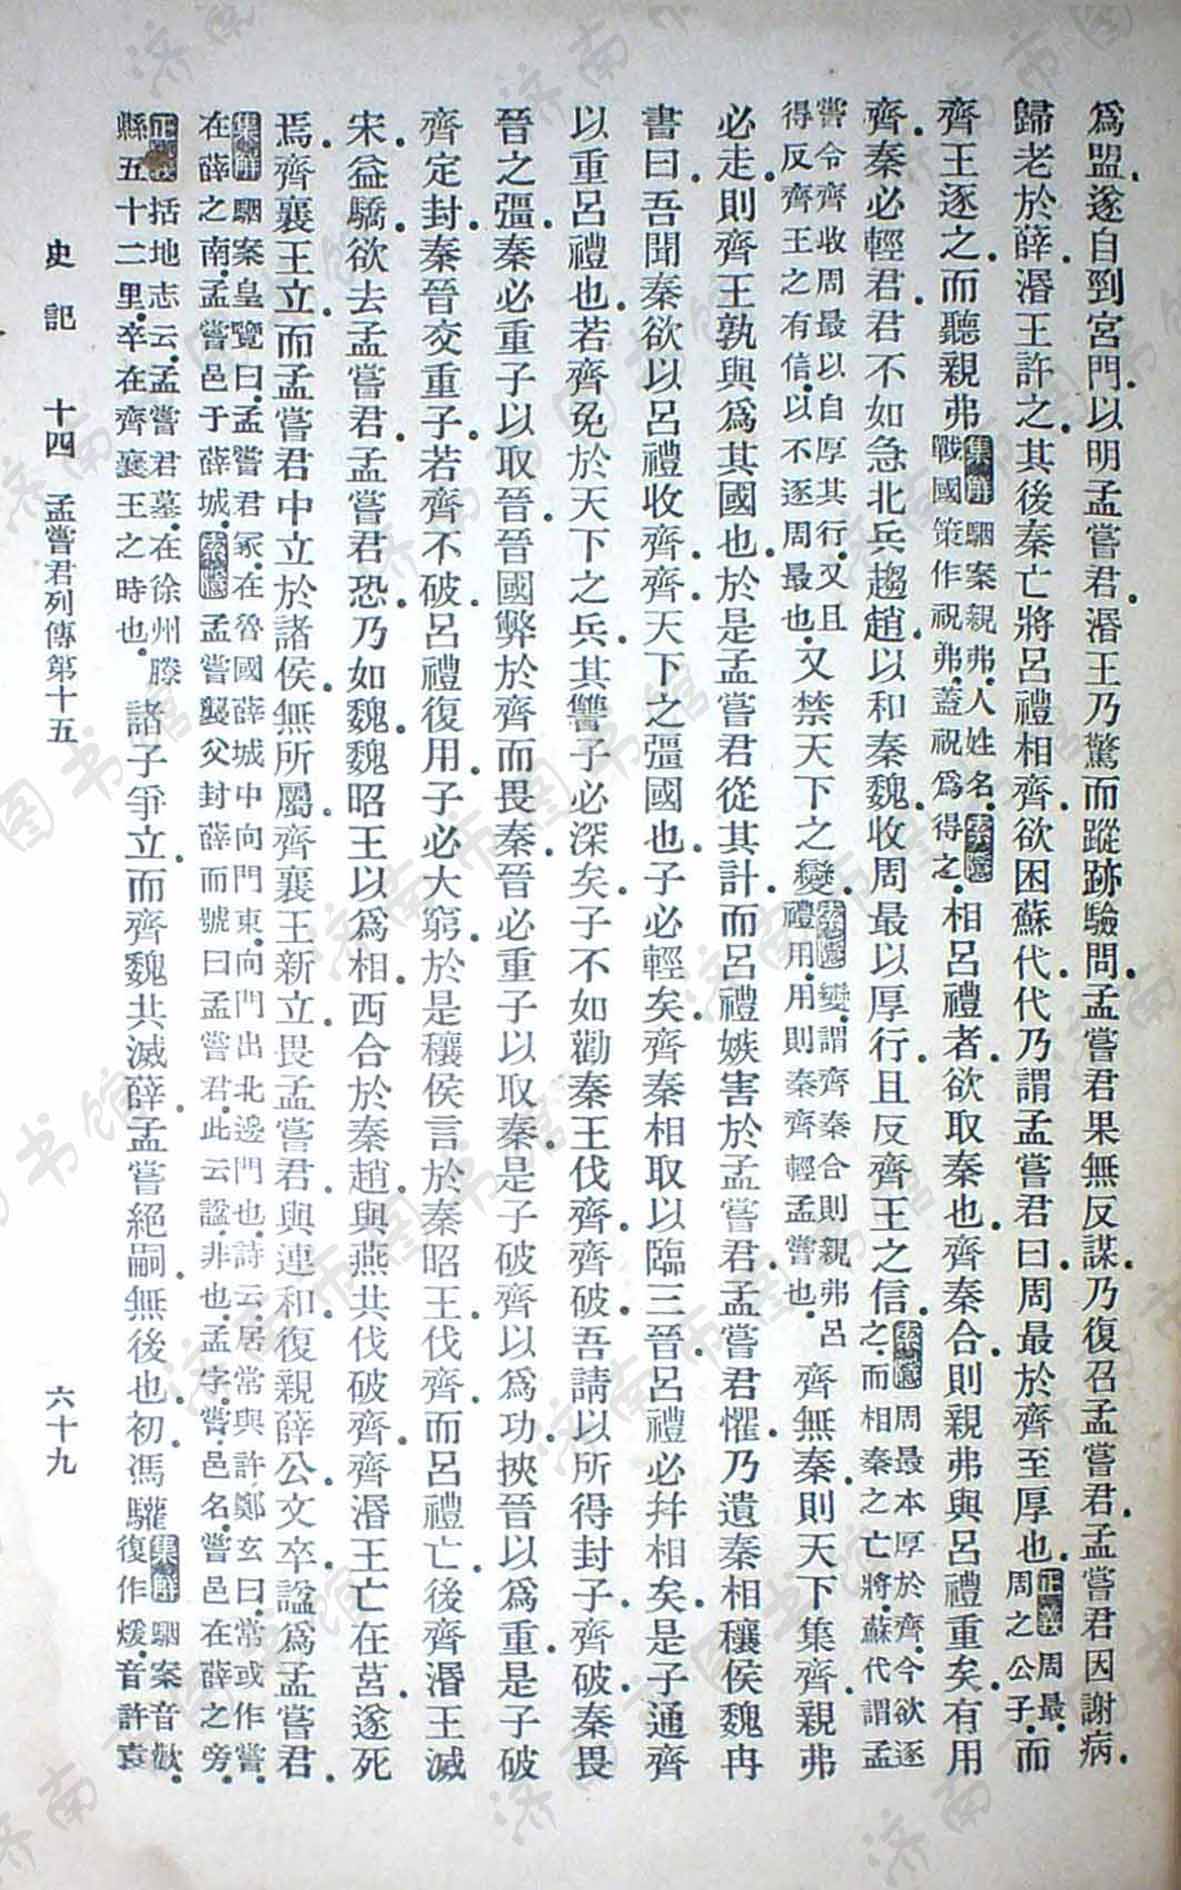 爲盟遂自剄宮門以明孟嘗君湣王乃驚而蹤跡驗問孟嘗君果無反謀乃復召孟嘗君孟嘗君因謝病
歸老於薛湣王許之其後秦亡將呂禮相齊欲困蘇代代乃謂孟嘗君曰周最於齊至厚也正義周最周之公子而
齊王逐之而聽親弗集解駰案親弗人姓名戰國策作祝弗蓋祝爲得之索隱相呂禮者欲取秦也齊秦合則親弗與呂禮重矣有用
齊秦必輕君君不如急北兵趨趙以和秦魏收周最以厚行且反齊王之信索隱周最本厚於齊今欲逐之而相秦之亡將蘇代謂孟
嘗令齊收周最以自厚其行又且得反齊王之有信以不逐周最也又禁天下之變索隱變謂齊秦合則親弗呂禮用用則秦齊輕孟嘗也齊無秦則天下集齊親弗
必走則齊王孰與爲其國也於是孟嘗君從其計而呂禮嫉害於孟嘗君孟嘗君懼乃遺秦相穰侯魏冉
書曰吾聞秦欲以呂禮收齊齊天下之彊國也子必輕矣齊秦相取以臨三晉呂禮必幷相矣是子通齊
以重呂禮也若齊免於天下之兵其讐子必深矣子不如勸秦王伐齊齊破吾請以所得封子齊破秦畏
晉之彊秦必重子以取晉晉國弊於齊而畏秦晉必重子以取秦是子破齊以爲功挾晉以爲重是子破
齊定封秦晉交重子若齊不破呂禮復用子必大窮於是穰侯言於秦昭王伐齊而呂禮亡後齊湣王滅
宋益驕欲去孟嘗君孟嘗君恐乃如魏魏昭王以爲相西合於秦趙與燕共伐破齊齊湣王亡在莒遂死
焉齊襄王立而孟嘗君中立於諸侯無所屬齊襄王新立畏孟嘗君與連和復親薛公文卒諡爲孟嘗君
集解駰案皇覽曰孟嘗君冢在魯國薛城中向門東向門出北邊門也詩云居常與許鄭玄曰常或作嘗在薛之南孟嘗邑于薛城索隱孟嘗襲父封薛而號曰孟嘗君此云諡非也孟字嘗邑名嘗邑在薛之旁
正義括地志云孟嘗君墓在徐州滕縣五十二里卒在齊襄王之時也諸子爭立而齊魏共滅薛孟嘗絕嗣無後也初馮驩集解駰案音歡復作煖音許袁
史記　十四　孟嘗君列傳第十五　六十九